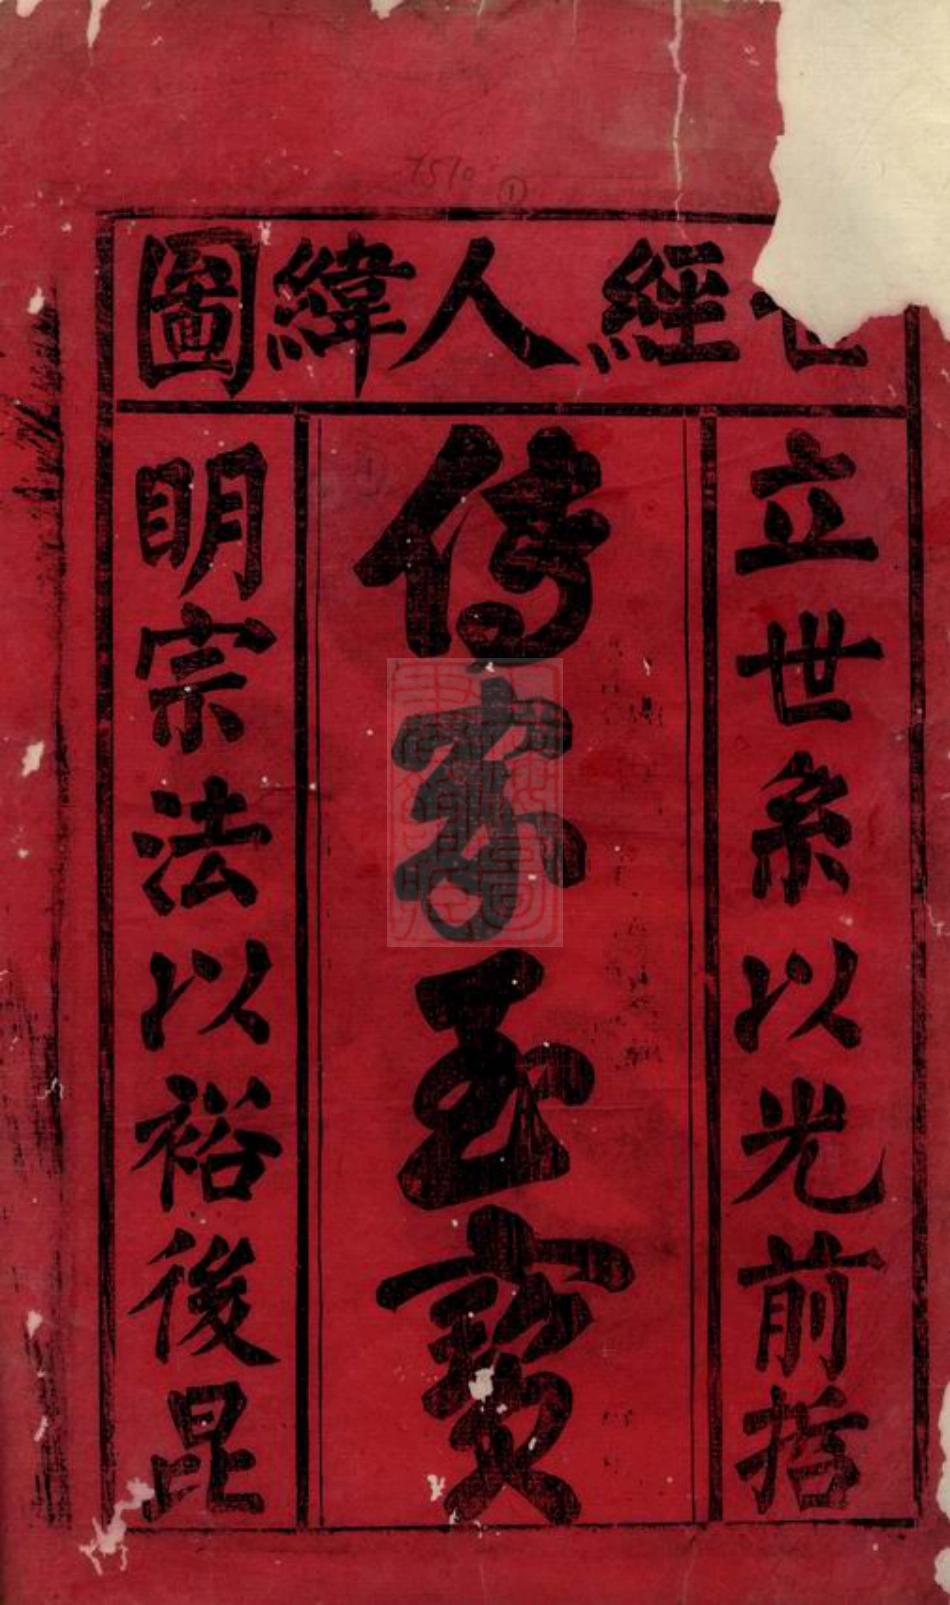 7510 ①
世經人緯圖
立世系以光前哲
傳家至寶
明宗法以裕後昆